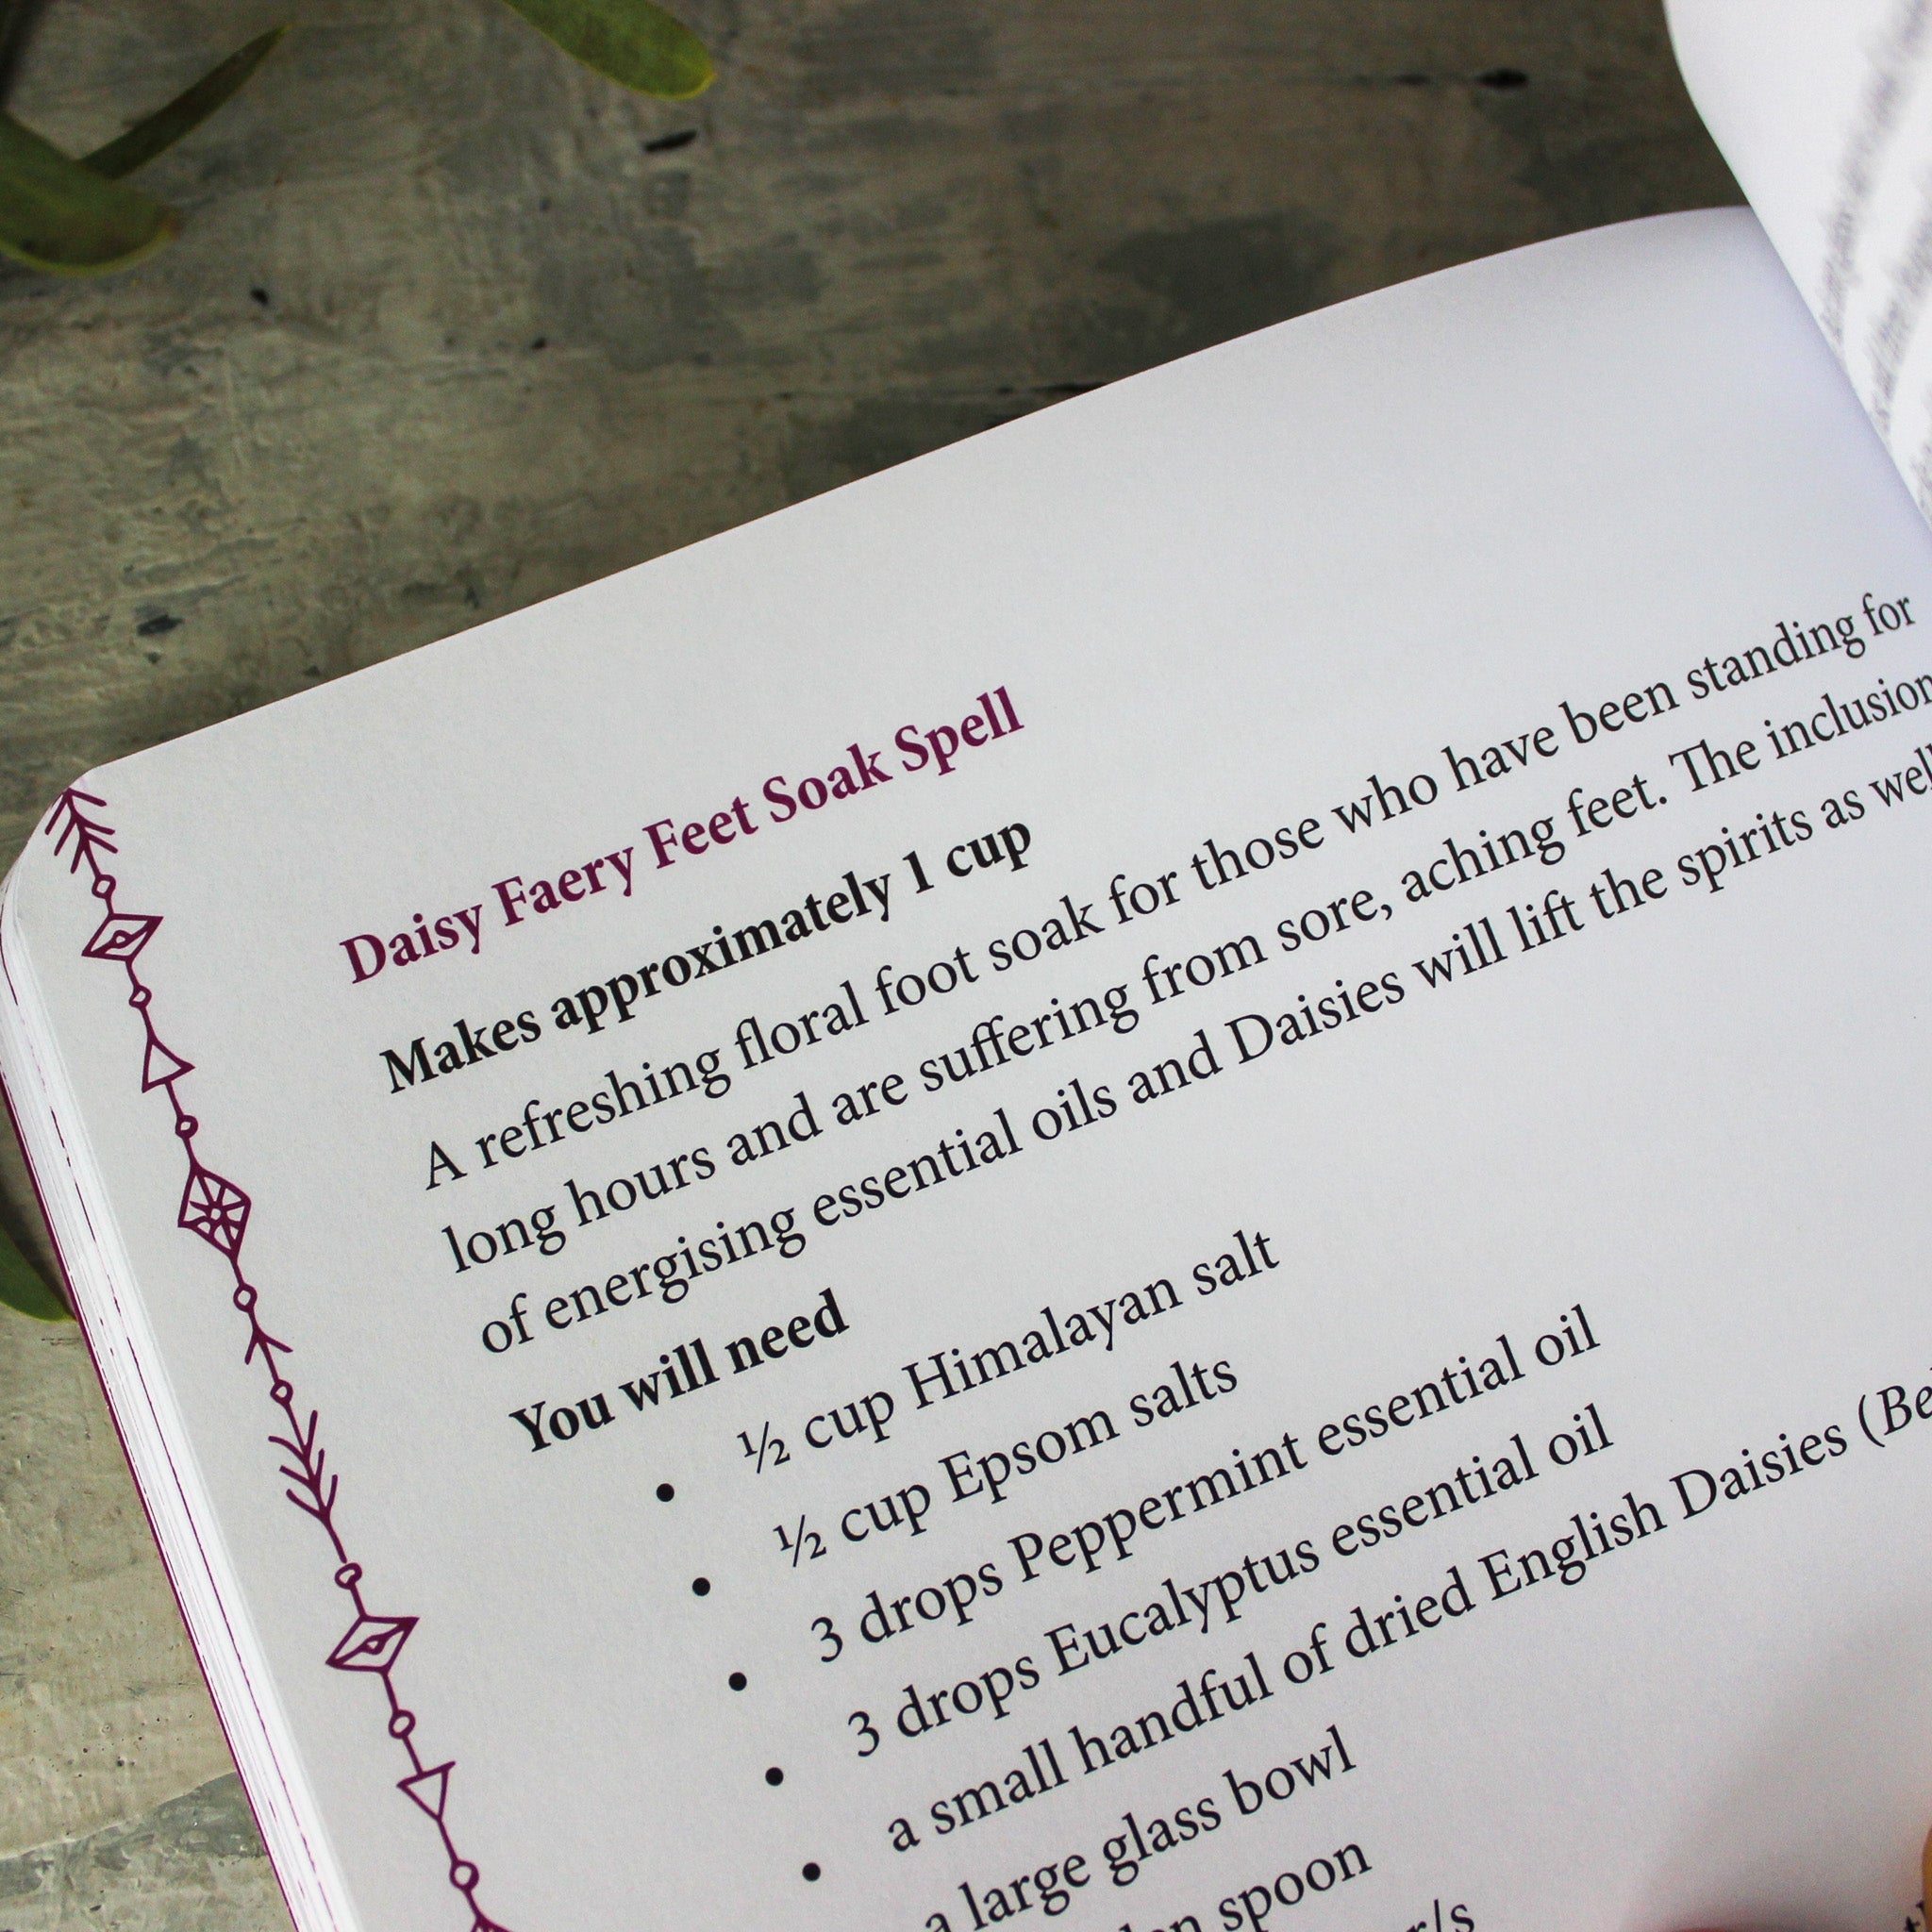 Daisy Faery Feet Soak Spell
Makes approximately 1 cup
A refreshing floral foot soak for those who have been standing for
long hours and are suffering from sore, aching feet. The inclusion
of energising essential oils and Daisies will lift the spirits as well
You will need
• ½ cup Himalayan salt
• ½ cup Epsom salts
• 3 drops Peppermint essential oil
• 3 drops Eucalyptus essential oil
• a small handful of dried English Daisies (Be
a large glass bowl
spoon